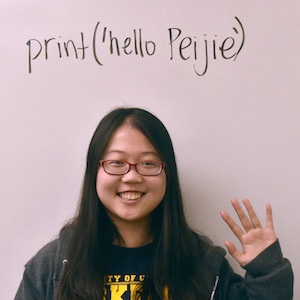 print('hello Peijie')
TY OF C